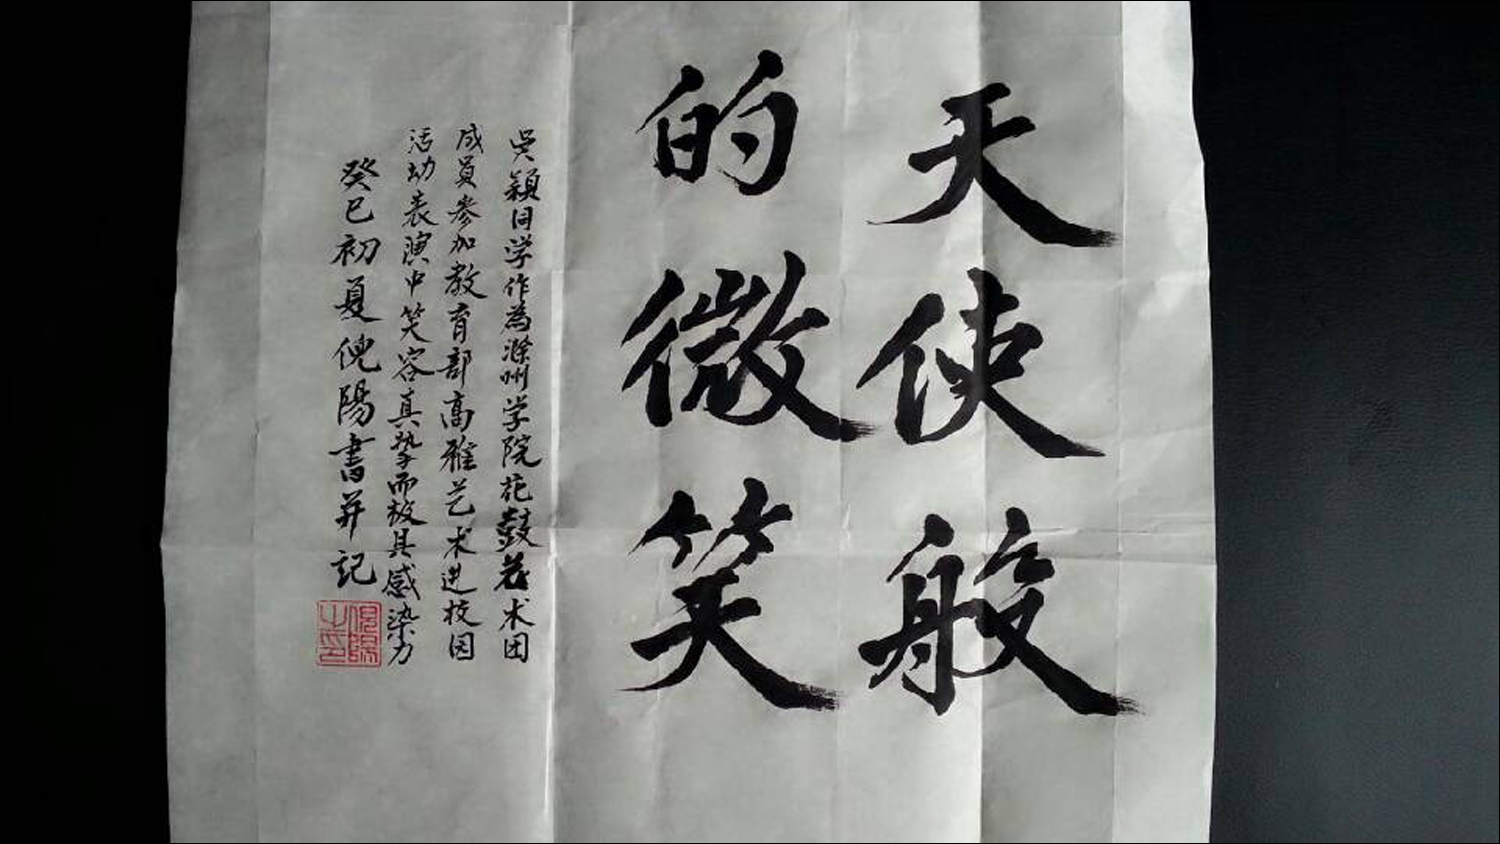 天使般
的微笑
吴颖同学作為滁州学院花鼓艺术团
成員参加教育部高雅艺术进校园
活动表演中笑容真挚而极具感染力
癸巳初夏倪陽書并記
倪陽之印